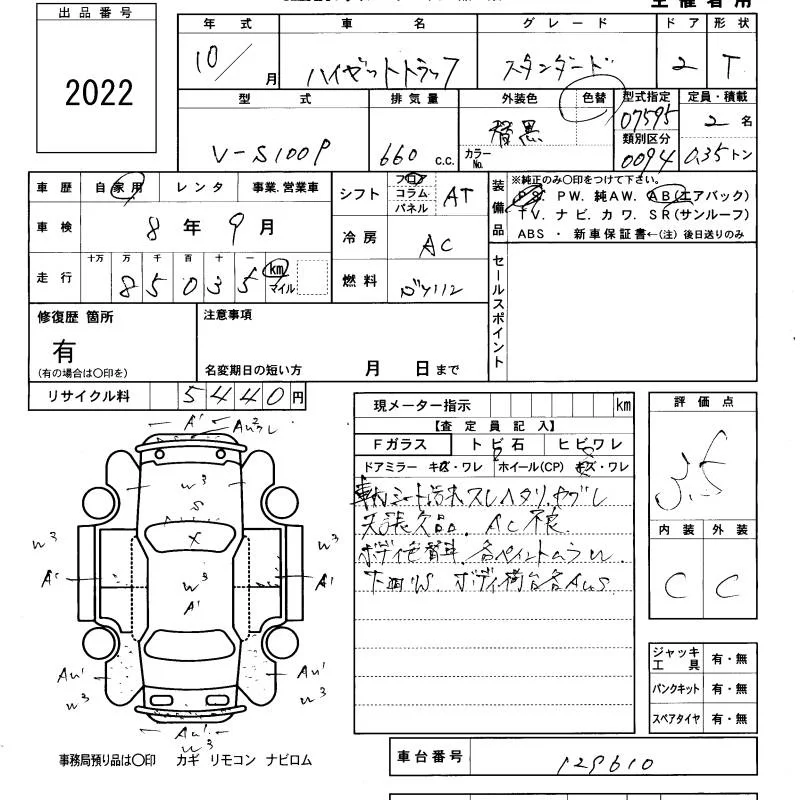 主催者用
出品番号
2022
年式 車名 グレード ドア 形状
10/ 月 ハイゼットトラック スタンダード 2 T
型式 排気量 外装色 色替 型式指定 定員・積載
V-S100P 660 C.C. 暗黒 カラーNo. 07595 2名
類別区分
0094 0.35トン
車歴 自家用 レンタ 事業.営業車
シフト フロア コラム パネル AT
装備品 ※純正のみ〇印をつけて下さい。
PS. PW. 純AW. AB(エアバック)
TV. ナビ. カワ. SR(サンルーフ)
ABS ・ 新車保証書←(注) 後日送りのみ
車検 8年9月
冷房 AC
走行 十万 万 千 百 十 一
85035 km マイル
燃料
セールスポイント
修復歴 箇所
有
(有の場合は〇印を)
注意事項
名変期日の短い方 月 日まで
リサイクル料 5440円
現メーター指示 km
【査定員記入】
Fガラス トビ石 ヒビワレ
ドアミラー キズ・ワレ ホイール(CP) キズ・ワレ
車内シート汚れスレヘタリ.ヤブレ
天張欠品. AC不良.
ボディ色替車. 各ペイントムラW.
下回りS. ボディ荷台各AuS
評価点
3.5
内装 外装
C C
ジャッキ工具 有・無
パンクキット 有・無
スペアタイヤ 有・無
A'
W³
S
X
W³ W³ W³
A' A' A'
Au' Au'
W³ W³
Au'
W³
事務局預り品は〇印 カギ リモコン ナビロム
車台番号 129610